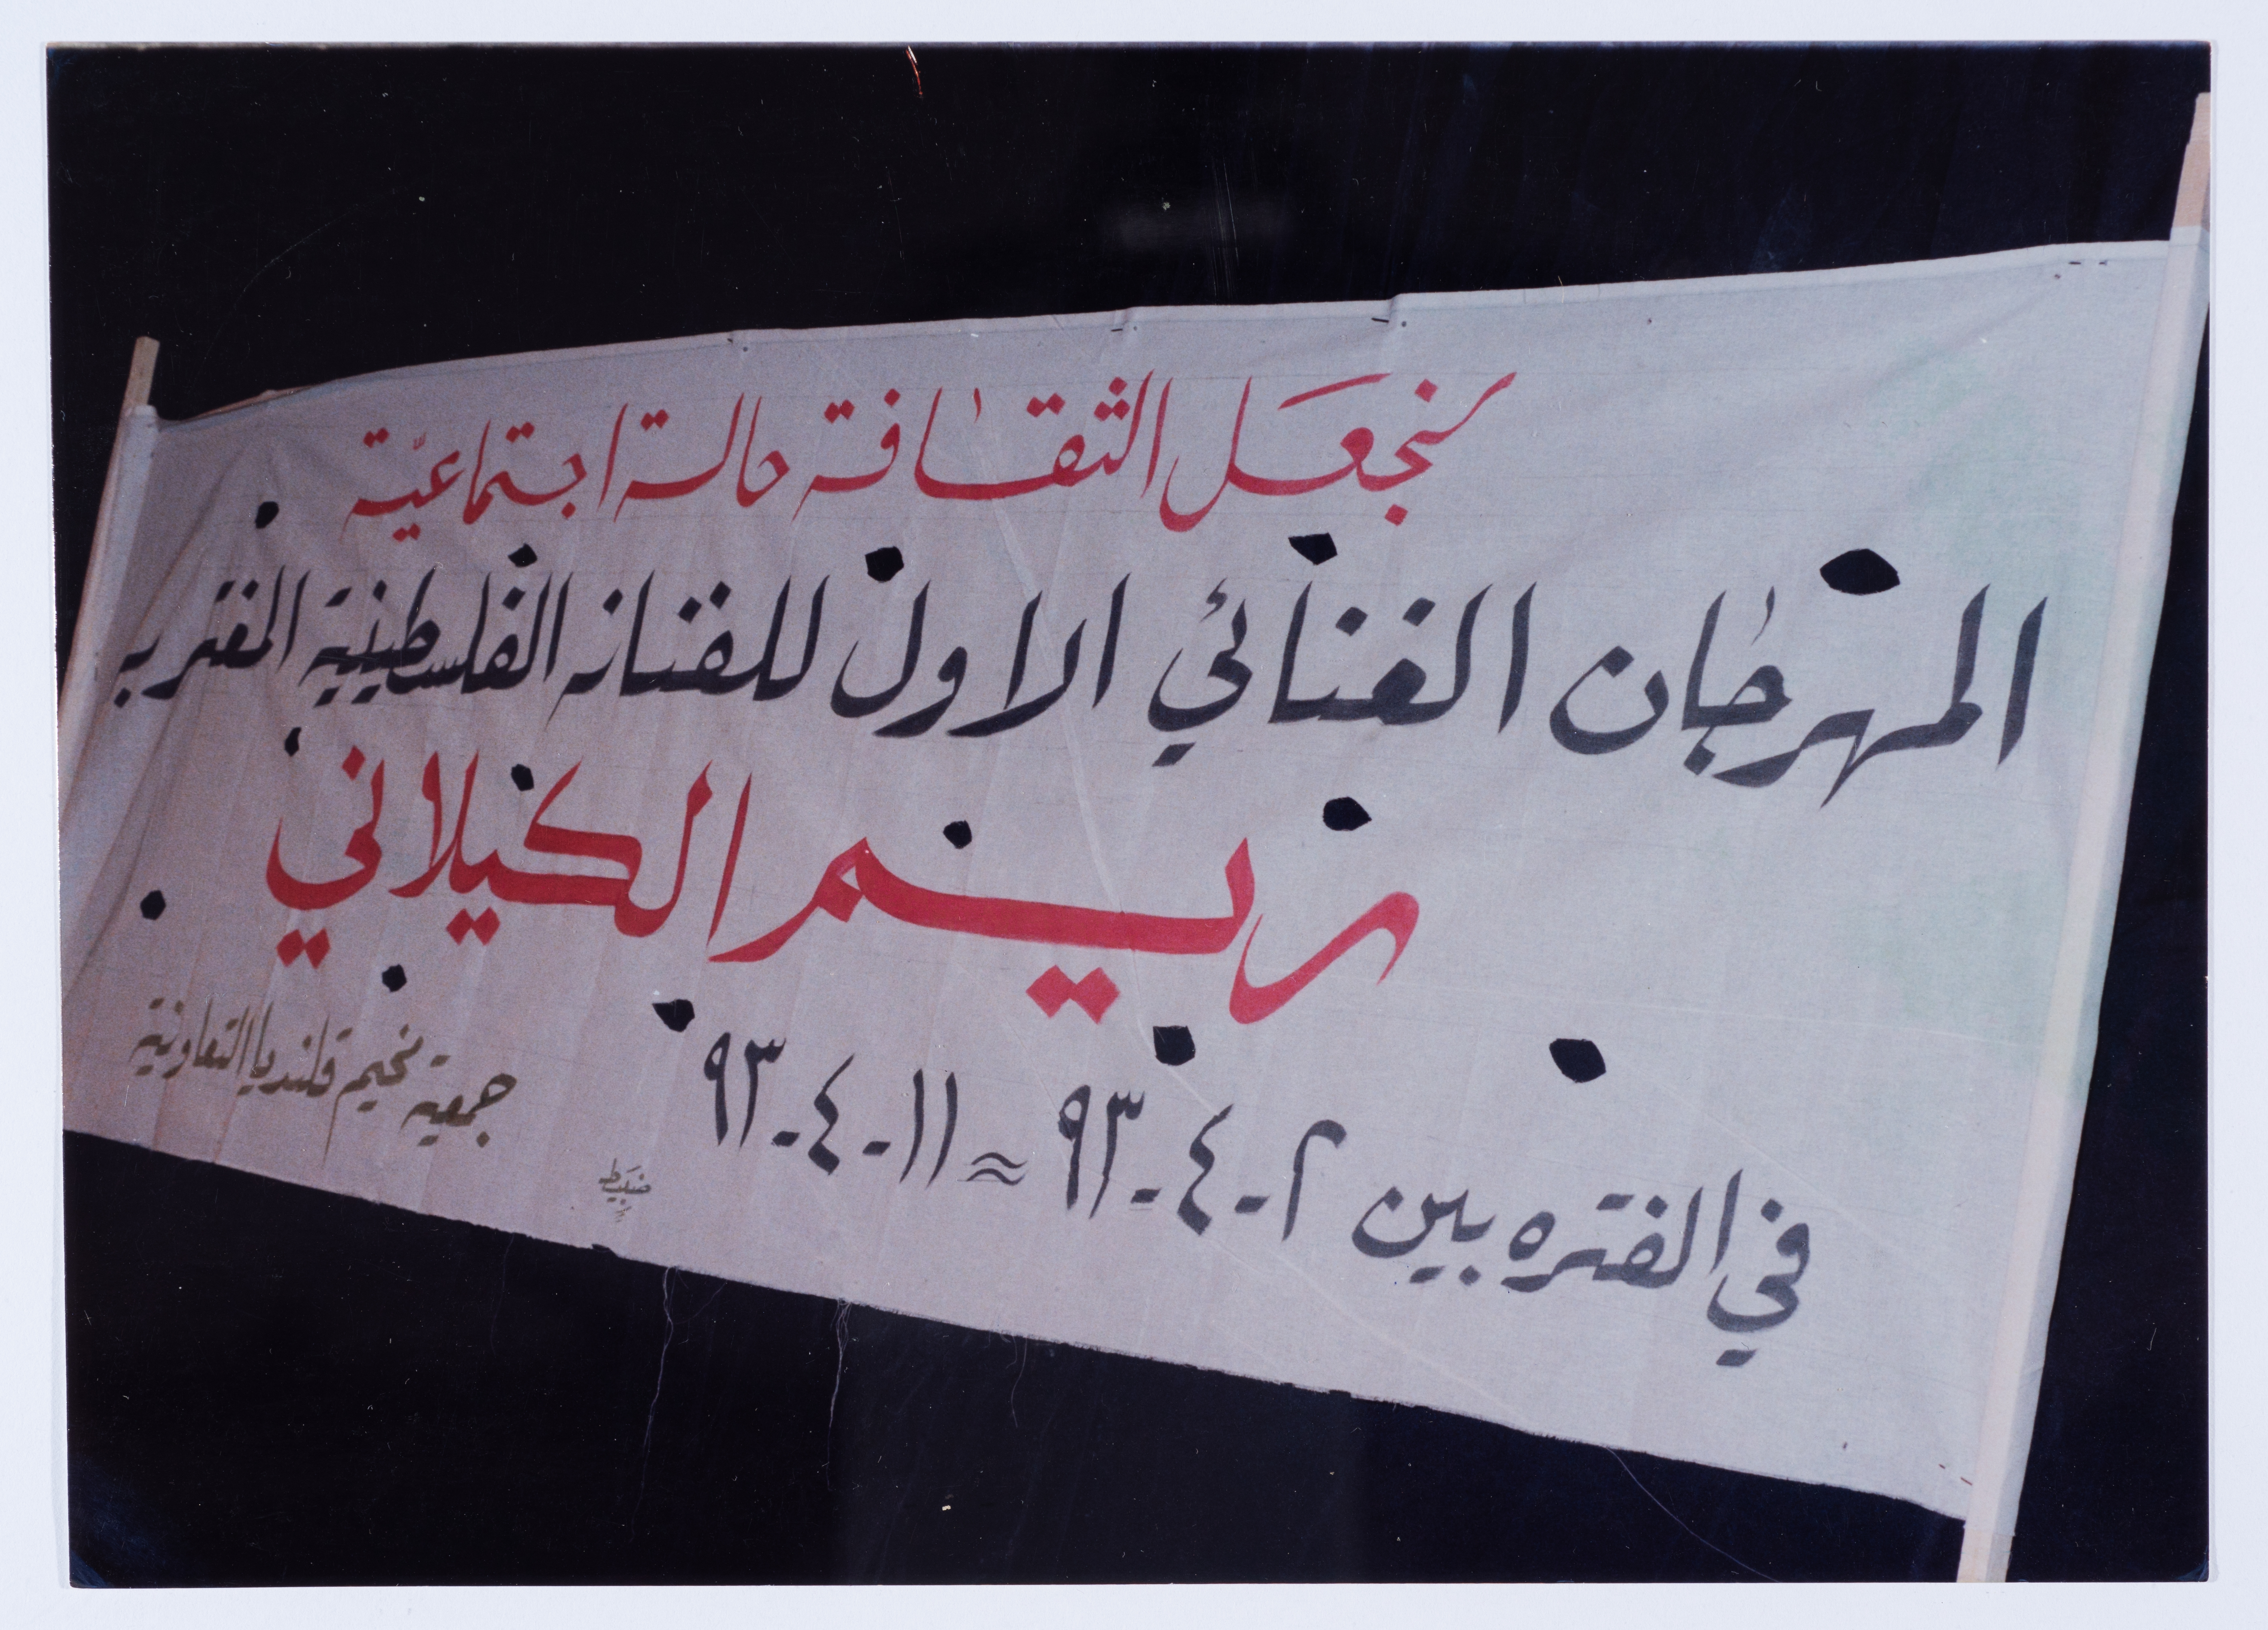 لنجعَل الثقافة حالة اجتماعيّة
المهرجان الغنائي الاول للفنانه الفلسطينية المغتربه
ريم الكيلاني
في الفتره بين ٢-٤-٩٣ ≈ ١١-٤-٩٣
جمعية مخيم قلنديا التعاونية